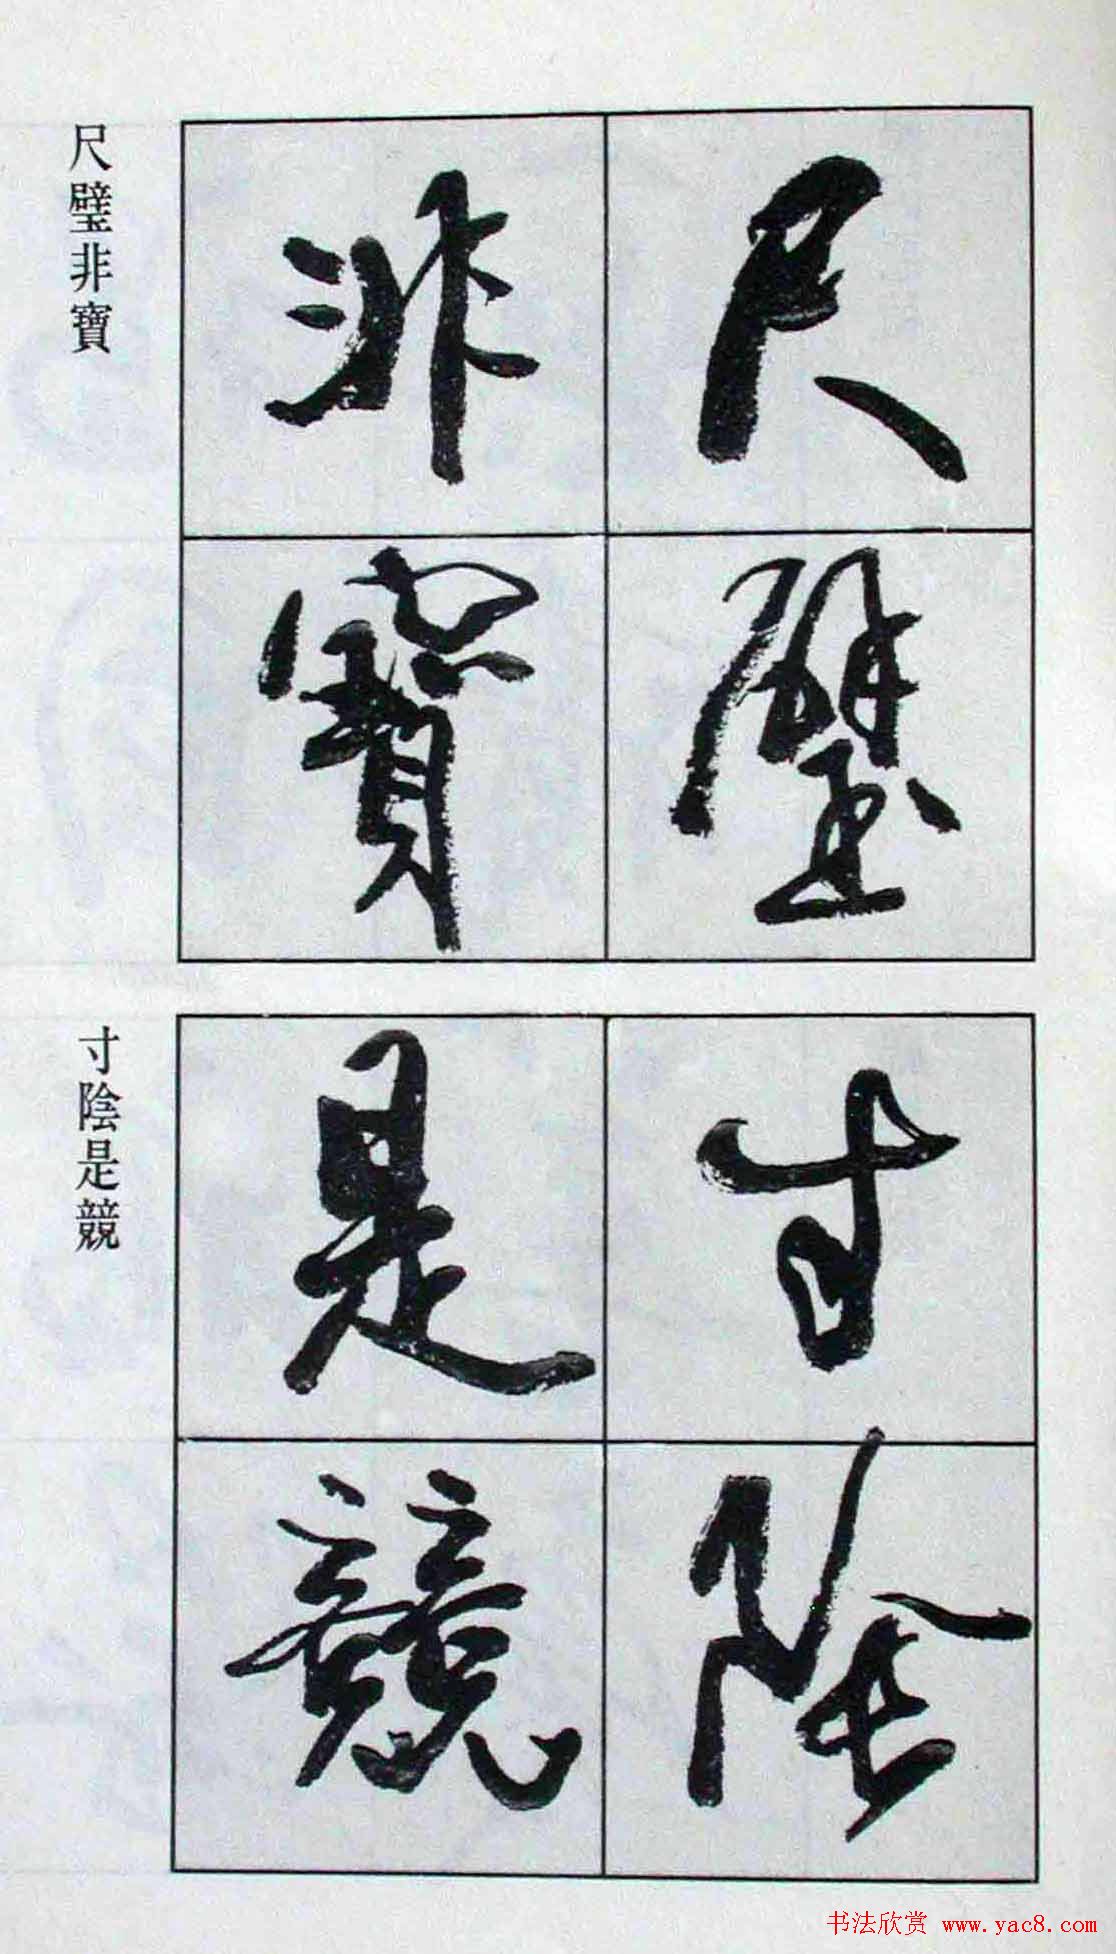 尺璧
非寶
尺璧非寶
寸陰
是競
寸陰是競
书法欣赏 www.yac8.com